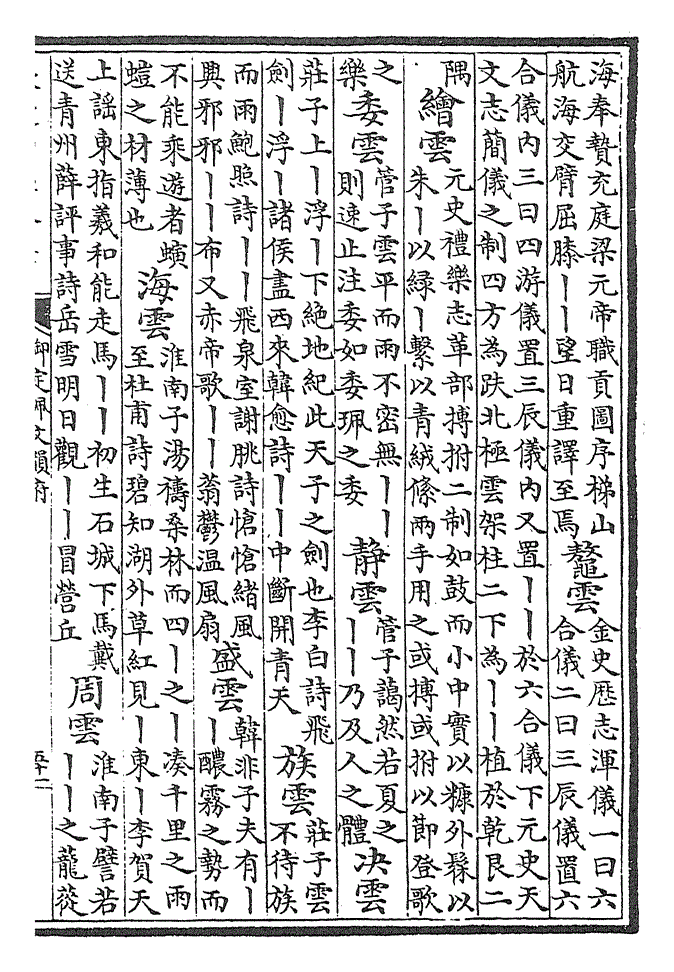 海奉贄充庭梁元帝職貢圖序梯山
航海交臂屈膝丨丨望日重譯至焉
鼇雲
金史歷志渾儀一曰六
合儀二曰三辰儀置六
合儀內三曰四游儀置三辰儀內又置丨丨於六合儀下元史天
文志簡儀之制四方為趺北極雲架柱二下為丨丨植於乾艮二
隅
繪雲
元史禮樂志革部搏拊二制如鼓而小中實以糠外髹以
朱丨以綠丨繫以青絨絛兩手用之或搏或拊以節登歌
之
樂
委雲
管子雲平而雨不密無丨丨
則速止注委如委珮之委
靜雲
管子藹然若夏之
丨丨乃及人之體
决雲
莊子上丨浮丨下絕地紀此天子之劍也李白詩飛
劍丨浮丨諸侯盡西來韓愈詩丨丨中斷開青天
族雲
莊子雲
不待族
而雨鮑照詩丨丨飛泉室謝朓詩愴愴緒風
興邪邪丨丨布又赤帝歌丨丨蓊鬱溫風扇
盛雲
韓非子夫有丨
丨醲霧之勢而
不能乘遊者螾
螘之材薄也
海雲
淮南子湯禱桑林而四丨之丨湊千里之雨
至杜甫詩碧知湖外草紅見丨東丨李賀天
上謠東指羲和能走馬丨丨初生石城下馬戴
送青州薛評事詩岳雪明日觀丨丨冒營丘
周雲
淮南子譬若
丨丨之蘢蓯
御定佩文韻府